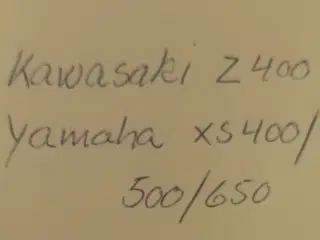 Kawasaki Z400
Yamaha XS400/
500/650